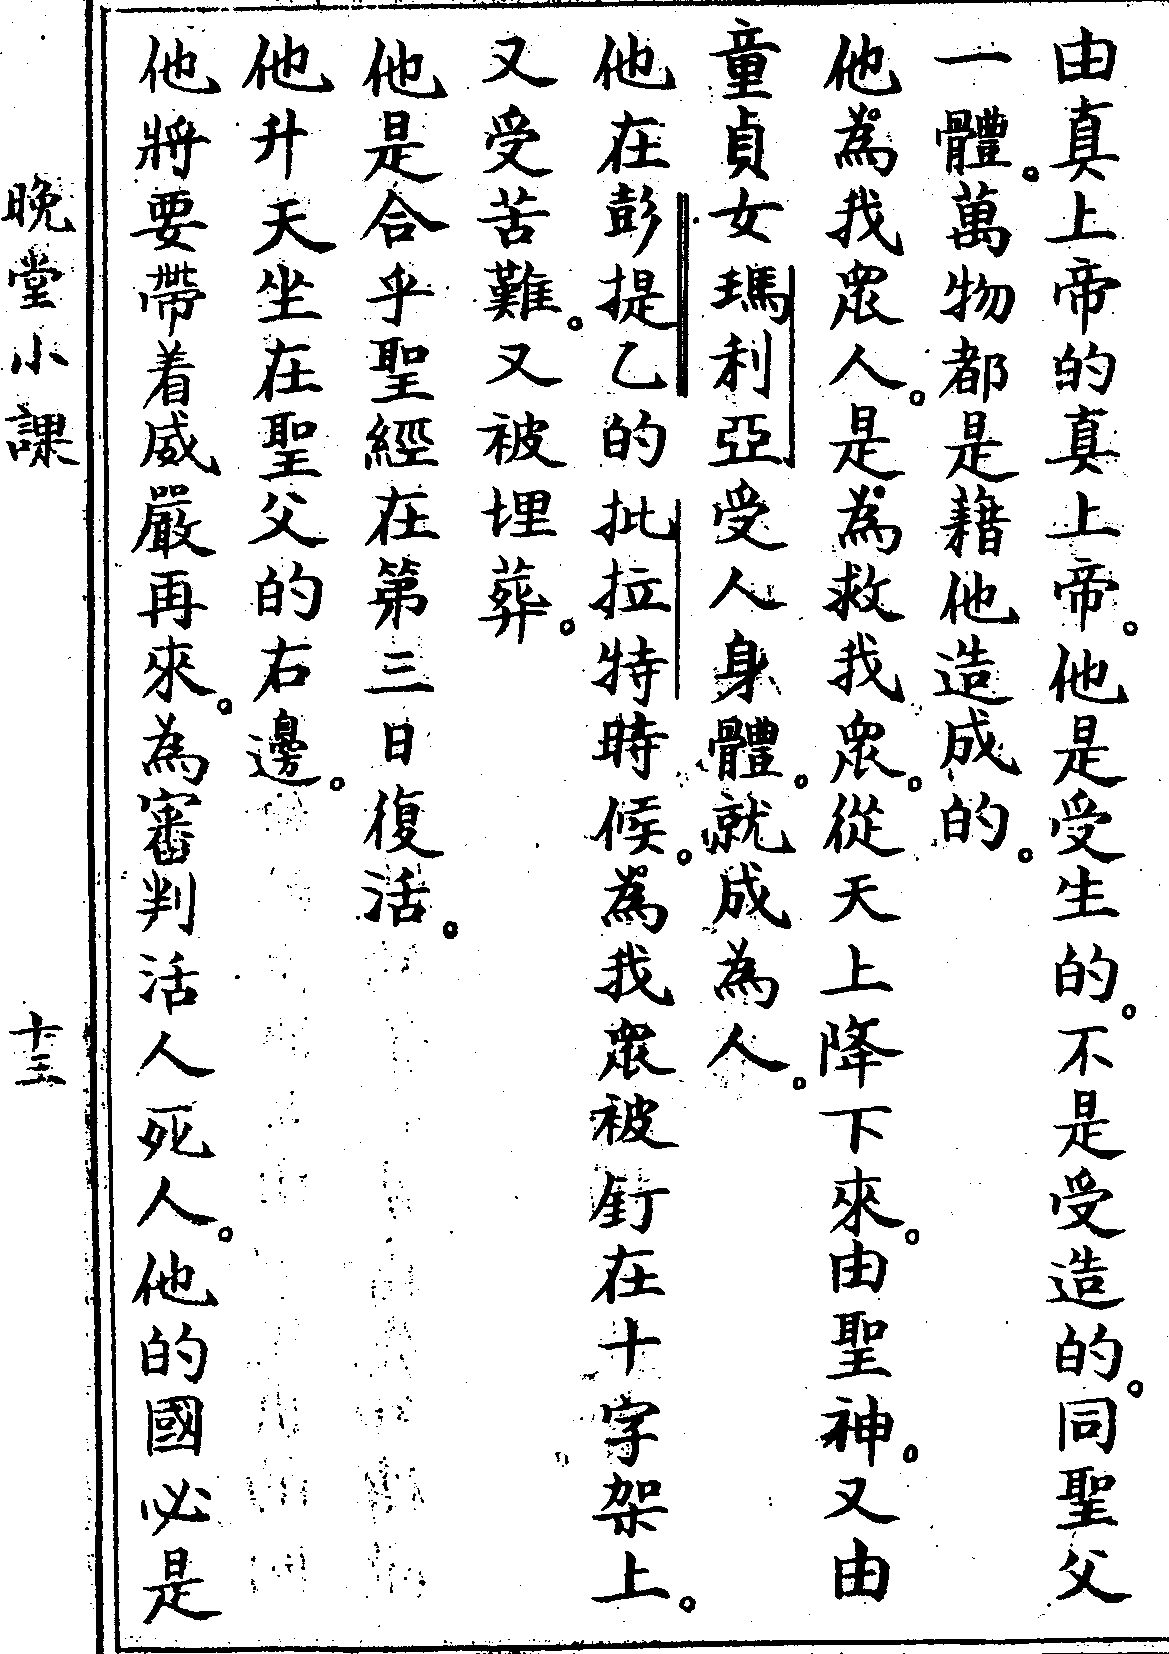 由真上帝的真上帝。他是受生的。不是受造的。同聖父
一體。萬物都是藉他造成的。
他為我眾人。是為救我眾。從天上降下來。由聖神。又由
童貞女瑪利亞受人身體。就成為人。
他在彭提乙的批拉特時候。為我眾被釘在十字架上。
又受苦難。又被埋葬。
他是合乎聖經在第三日復活。
他升天坐在聖父的右邊。
他將要帶着威嚴再來。為審判活人死人。他的國必是
晚堂小課
十三